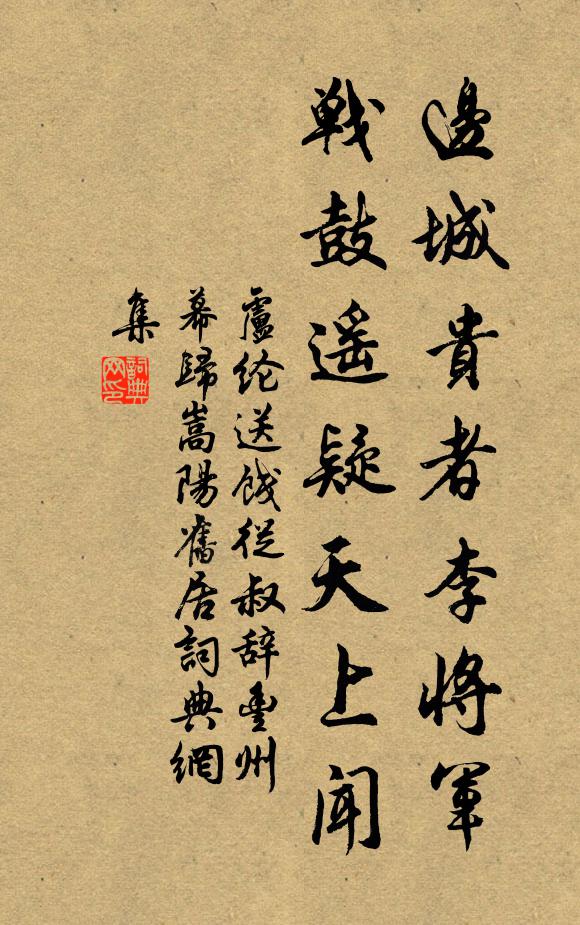 邊城貴者李將軍
戰鼓遥疑天上聞
盧纶送餞從叔辞豐州
幕歸嵩陽舊居詞典網
集
詞典
网印